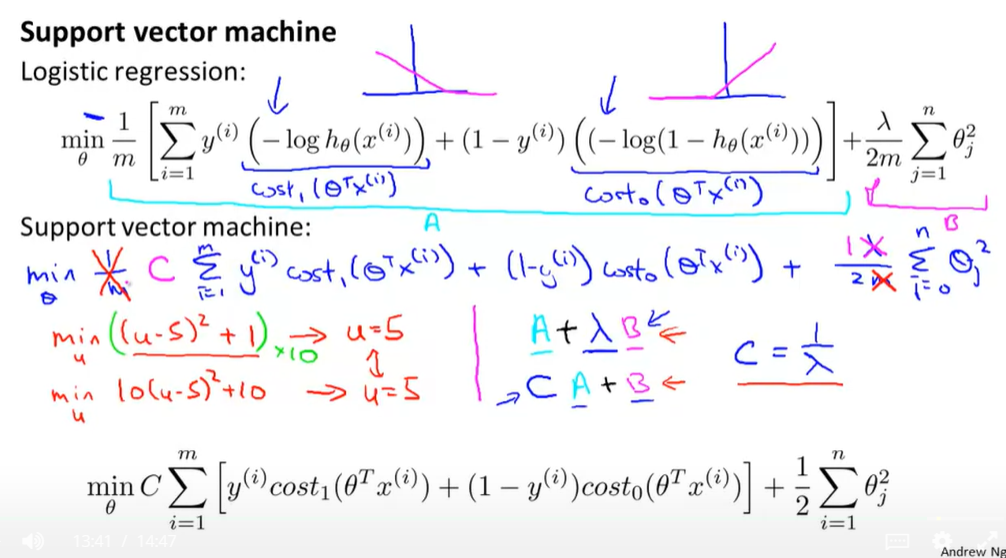 Support vector machine
Logistic regression:
min_θ 1/m [ ∑_{i=1}^{m} y^{(i)} (− log h_θ(x^{(i)})) + (1 − y^{(i)}) ((− log(1 − h_θ(x^{(i)}))) ] + λ/2m ∑_{j=1}^{n} θ_j^2
cost₁(θᵀx^{(i)}) cost₀(θᵀx^{(i)})
A B
Support vector machine:
min_θ 1/m C ∑_{i=1}^{m} y^{(i)} cost₁(θᵀx^{(i)}) + (1-y^{(i)}) cost₀(θᵀx^{(i)}) + 1 λ/2m ∑_{i=0}^{n} θ_j^2
min_u ((u-5)² + 1) ×10 → u=5 A + λB ← C = 1/λ
min_u 10(u-5)²+10 → u=5 → CA + B ←
min_θ C ∑_{i=1}^{m} [y^{(i)}cost₁(θᵀx^{(i)}) + (1 − y^{(i)})cost₀(θᵀx^{(i)})] + 1/2 ∑_{i=1}^{n} θ_j^2
13:41 / 14:47
Andrew Ng